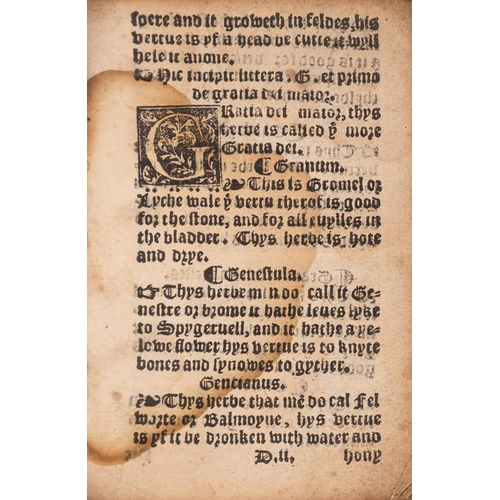 spere and it groweth in feldes, his
vertue is yf a head be cutte it wyll
hele it anone.
Hic incipit littera. G. et primo
de gratia dei maior.
GRatia dei maior, thys
herbe is called ẏ more
Gratia dei.
¶ Granum.
This is Gromel or
Lyche wale ẏ vertu therof is good
for the stone, and for all euylles in
the bladder. Thys herbe is hote
and drye.
¶ Genestula.
Thys herbe men do call it Ge-
nestre or brome it hathe leues lyke
to Spygeruell, and it hathe a ye-
lowe flower hys vertue is to knyte
bones and synowes to gyther.
Gencianus.
Thys herbe that mē do cal Fel
worte or Balmoyne, hys vertue
is yf it be dronken with water and
D.ii. hony